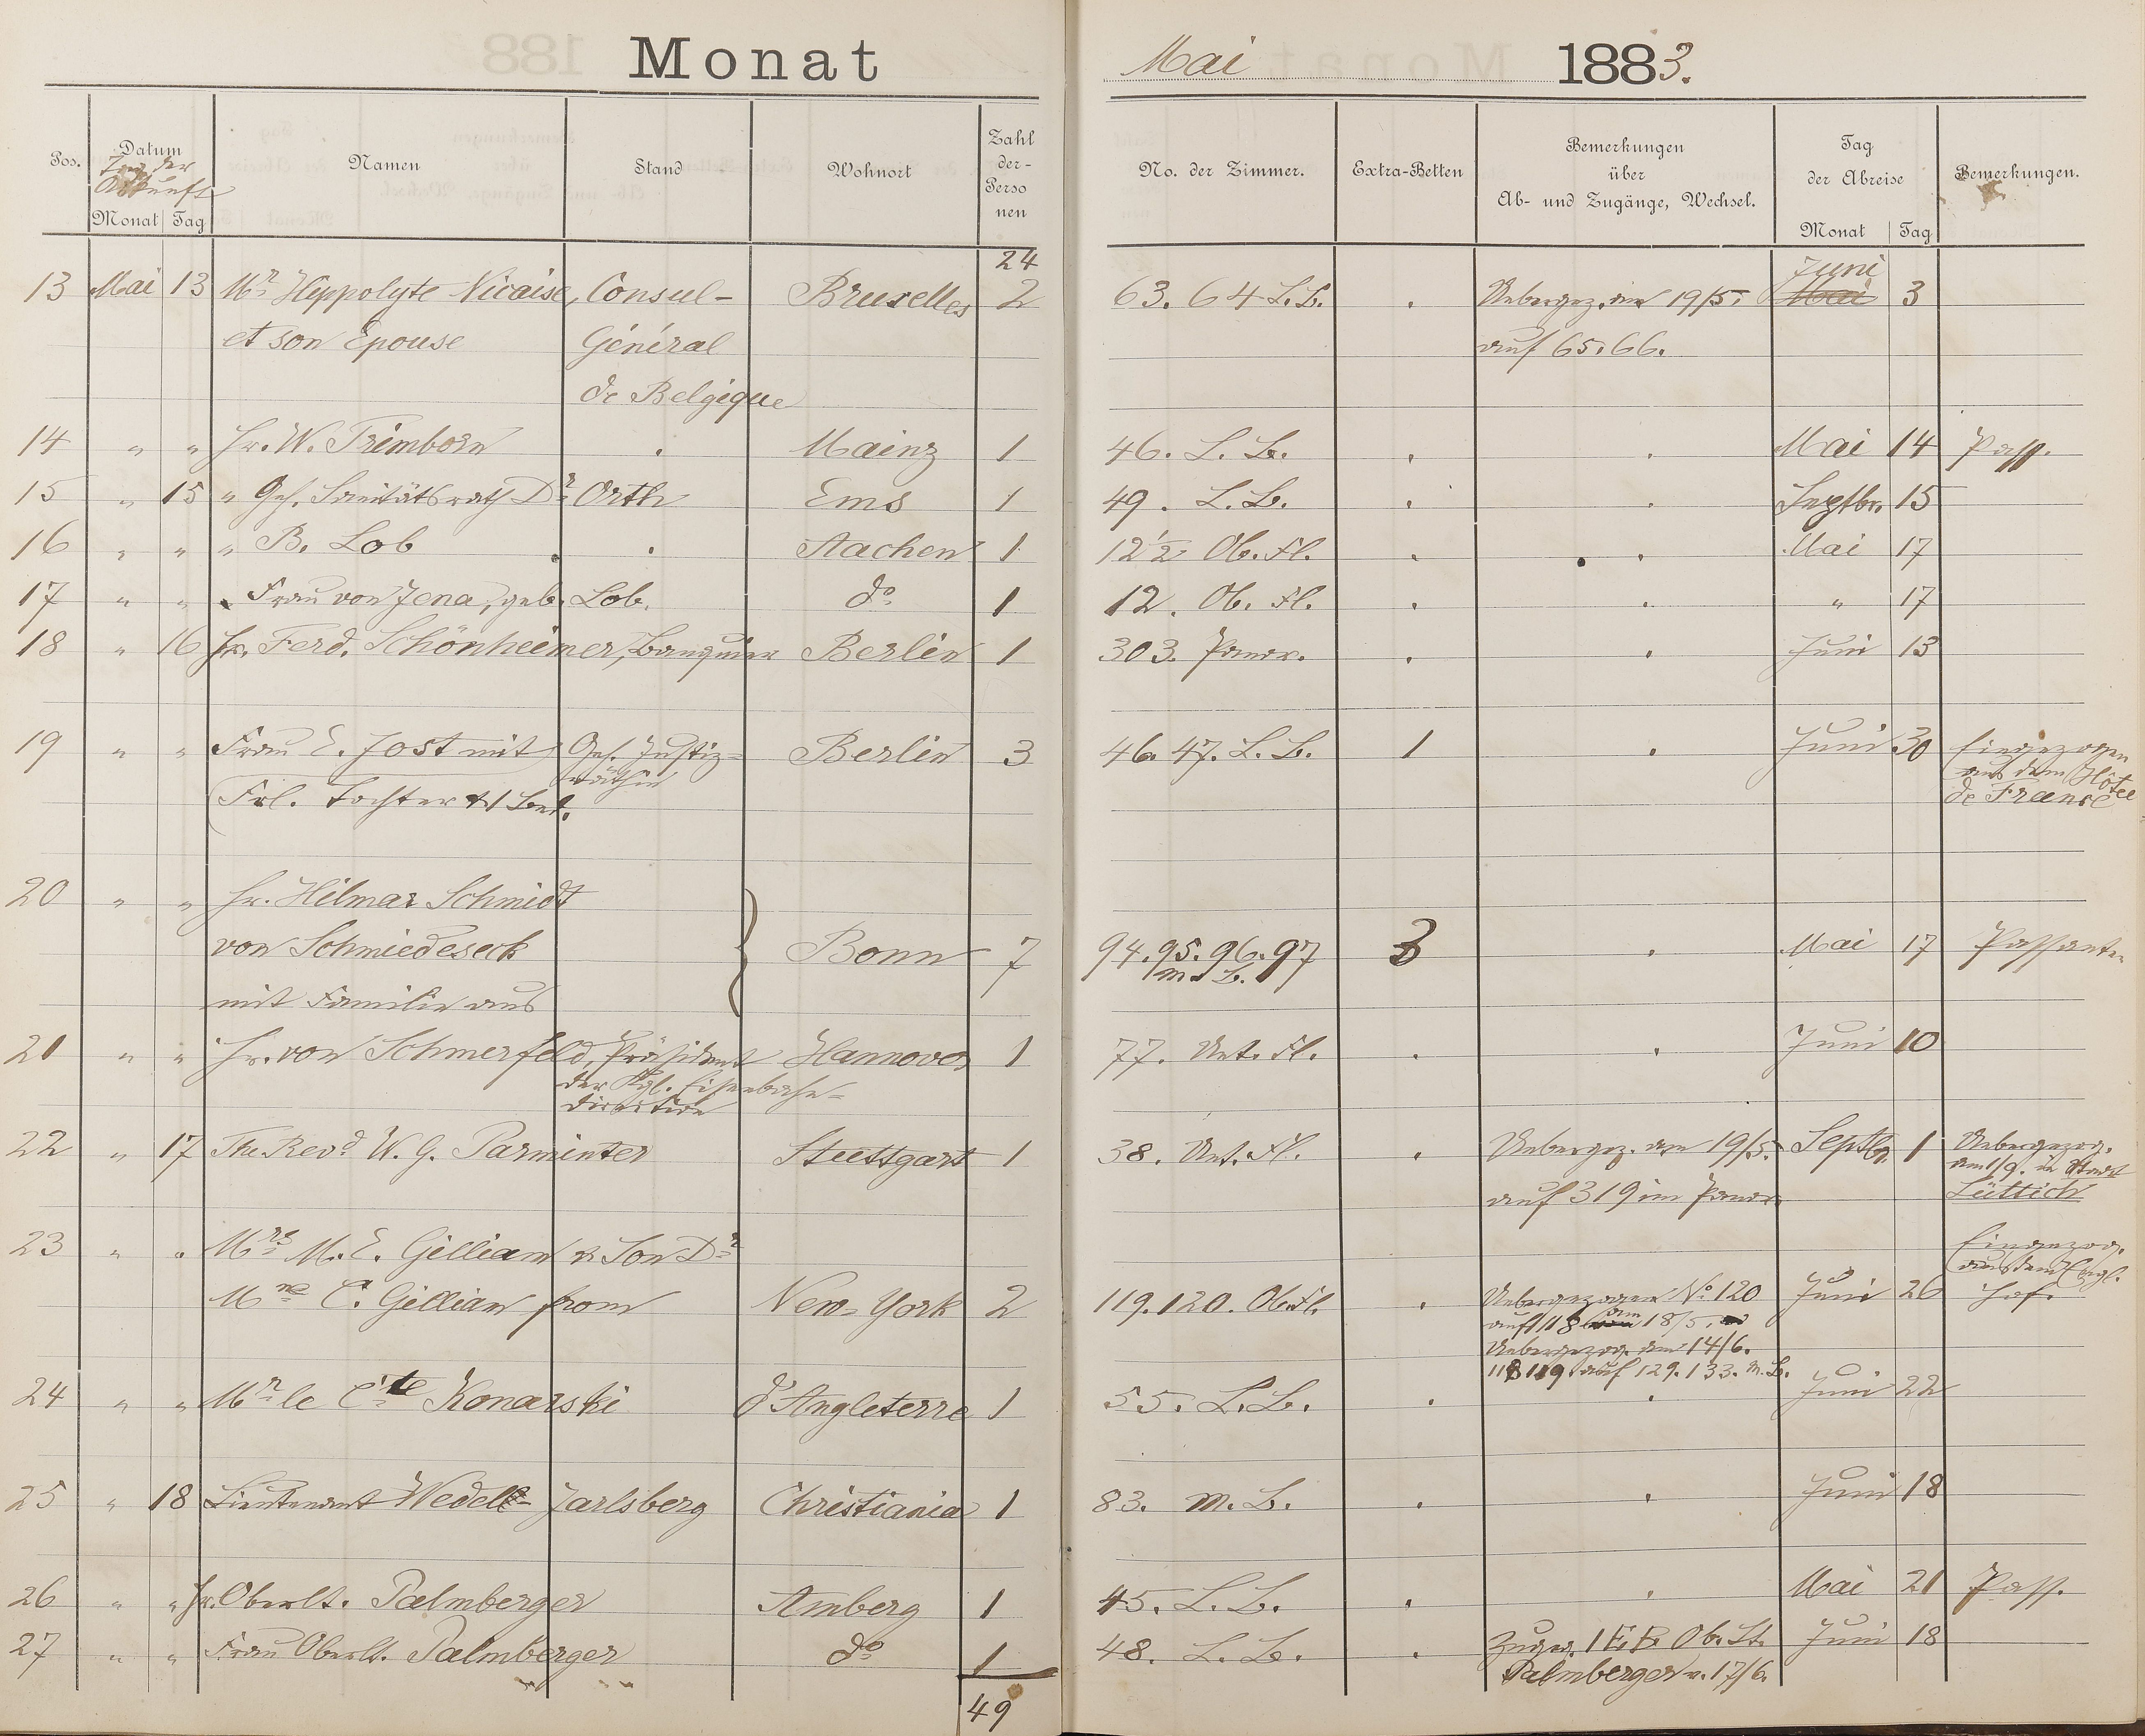 Monat
Mai 1883.
Pos. Datum Namen Stand Wohnort Zahl der- Perso nen No. der Zimmer. Extra-Betten Bemerkungen über Ab- und Zugänge, Wechsel. Tag der Abreise Bemerkungen.
Tag der Ankunft
Monat Tag Monat Tag
24
Juni
13 Mai 13 Mr Hippolyte Nicaise, Consul- Bruxelles 2 63. 64 L.B. . Uebergez. am 19/5. Mai 3
et son Epouse Général auf 65. 66.
de Belgique
14 " " Hr. W. Trimborn . Mainz 1 46. L. B. . . Mai 14 Pass.
15 " 15 " Geh. Sanitätsrath Dr Orth Ems 1 49. L. B. . . Septbr. 15
16 " " " B. Lob . Aachen 1 12½ Ob. Fl. . . Mai 17
17 " " Frau von Jena, geb. Lob. do 1 12. Ob. Fl. . . " 17
18 " 16 Hr. Ferd. Schönheimer, Banquier Berlin 1 303. Panor. . . Juni 13
19 " " Frau E. Jost mit Geh. Justiz- Berlin 3 46. 47. L. B. 1 . Juni 30 Eingezogen
räthin aus dem Hôtel
Frl. Tochter & 1 Bed. de France
20 " " Hr. Hilmar Schmidt
von Schmiedeseck Bonn 7 94. 95. 96. 97 3 . Mai 17 Passanten
m. B.
mit Familie aus
21 " " Hr. von Schmerfeld, Präsident Hannover 1 77. Unt. Fl. . . Juni 10
der Kgl. Eisenbahn-
direction
22 " 17 The Revd W. G. Parminter Stuttgart 1 38. Unt. Fl. . Uebergez. am 19/5. Septbr. 1 Uebergezog.
am 1/9. in Stadt
auf 319 im Panor. Lüttich
23 " " Mrs M. E. Gillian & Son Dr Eingezog.
aus dem Engl.
C. Gillian from New-York 2 119. 120. Ob. Fl. . Uebergezogen No 120 Juni 26 Hof.
auf 118 am 18/5.
Uebergezog. am 14/6.
118 119. auf 129. 133. M. B.
24 " " Mr le Cte Konarski d'Angleterre 1 55. L. B. . . Juni 22
25 " 18 Lieutenant Wedell- Jarlsberg Christiania 1 83. M. B. . . Juni 18
26 " " Hr. Oberlt. Palmberger Amberg 1 45. L. B. . . Mai 21 Pass.
27 " " Frau Oberlt. Palmberger do 1 48. L. B. . Zugez. 1 E. B. Ob. Lt. Juni 18
Palmberger v. 17/6.
49